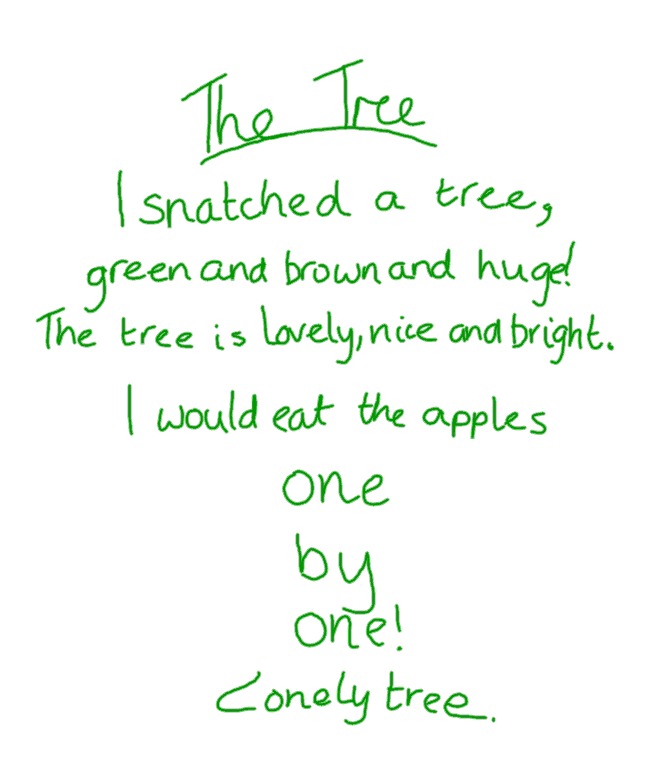 The Tree
I snatched a tree,
green and brown and huge!
The tree is lovely, nice and bright.
I would eat the apples
one
by
one!
Lonely tree.